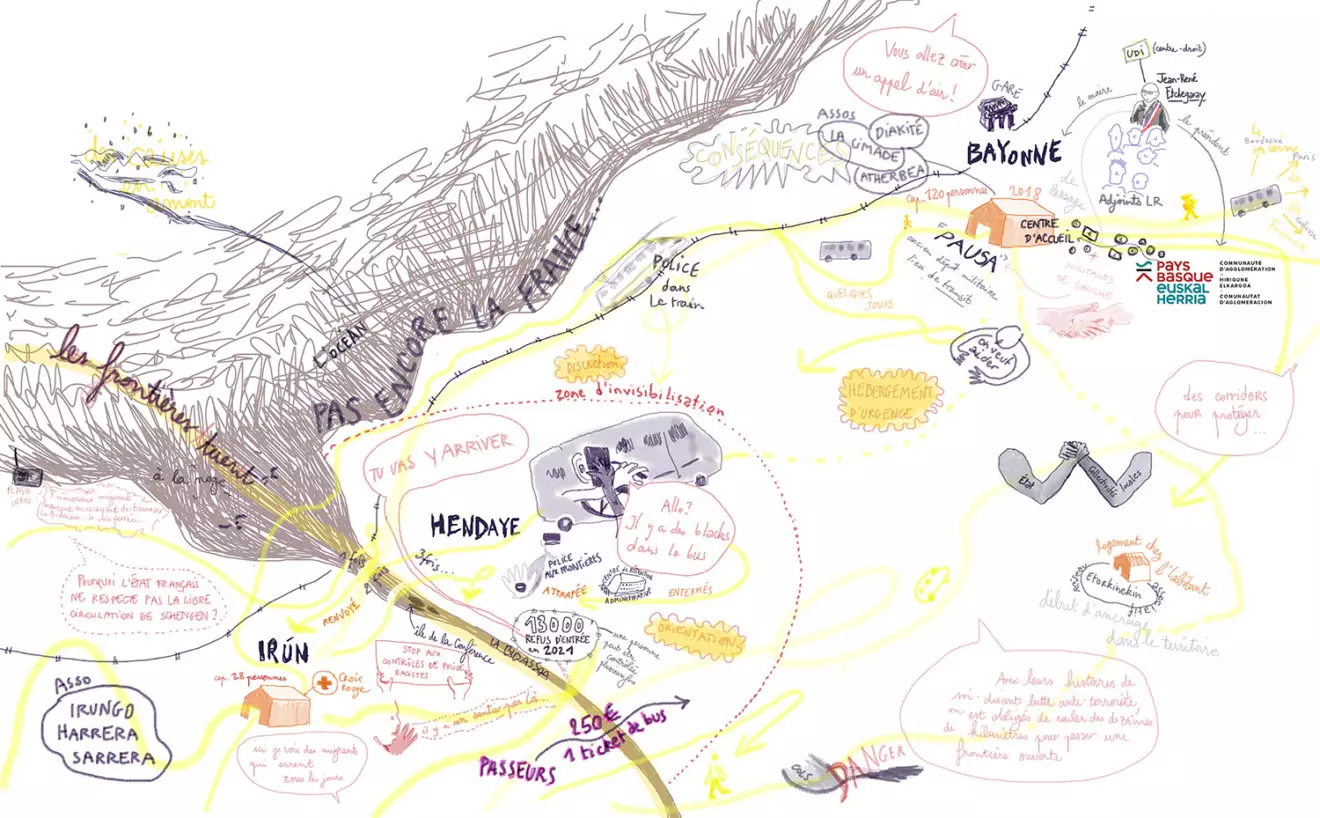 Vous allez créer
un appel d'air!
GARE
UDI
(centre-droit)
Jean-René
Etchegaray
le maire
le président
Adjoints LR
Bordeaux
Paris
ASSOS
LA CIMADE
DIAKITÉ
ATHERBEA
CONSÉQUENCES
BAYONNE
cap. 120 personnes
2018
CENTRE
D'ACCUEIL
PAUSA
ancien dépôt militaire
lieu de transit
de passage
MILITANTS
DE GAUCHE
PAYS
BASQUE
EUSKAL
HERRIA
COMMUNAUTÉ
D'AGGLOMÉRATION
HIRIGUNE
ELKARGOA
COMUNAUTAT
D'AGLOMERACION
des causes
POLICE
dans
le train
QUELQUES
JOURS
on veut
aider
L'OCÉAN
PAS ENCORE LA FRANCE...
les frontières tuent
à la nage
DISCRÉTION
zone d'invisibilisation
HÉBERGEMENT
D'URGENCE
des corridors
pour protéger...
TU VAS Y ARRIVER
HENDAYE
Allo?
Il y a des blacks
dans le bus
POLICE
AUX FRONTIÈRES
ATTRAPÉE
CENTRE DE RÉTENTION
ADMINISTRATIVE
ENFERMÉS
État
Collectivités locales
logement chez
l'habitant
Etorkinekin
début d'ancrage
dans le territoire
POURQUOI L'ÉTAT FRANÇAIS
NE RESPECTE PAS LA LIBRE
CIRCULATION DE SCHENGEN?
1 fois
2
3 fois...
RENVOYÉ
13000
REFUS D'ENTRÉE
en 2021
une personne
peut être
contrôlée
plusieurs fois
ORIENTATION
île de la Conférence
LA BIDASSOA
IRÚN
cap. 28 personnes
CROIX
ROUGE
STOP AUX
CONTRÔLES DE POLICE
RACISTES
il y a un sentier par là...
ASSO
IRUNGO
HARRERA
SARRERA
ici je vois des migrants
qui errent
tous les jours
PASSEURS
250€
1 ticket de bus
cols
DANGER
Avec leurs histoires de
soi-disant lutte anti-terroriste,
on est obligés de rouler des dizaines
de kilomètres pour passer une
frontière ouverte